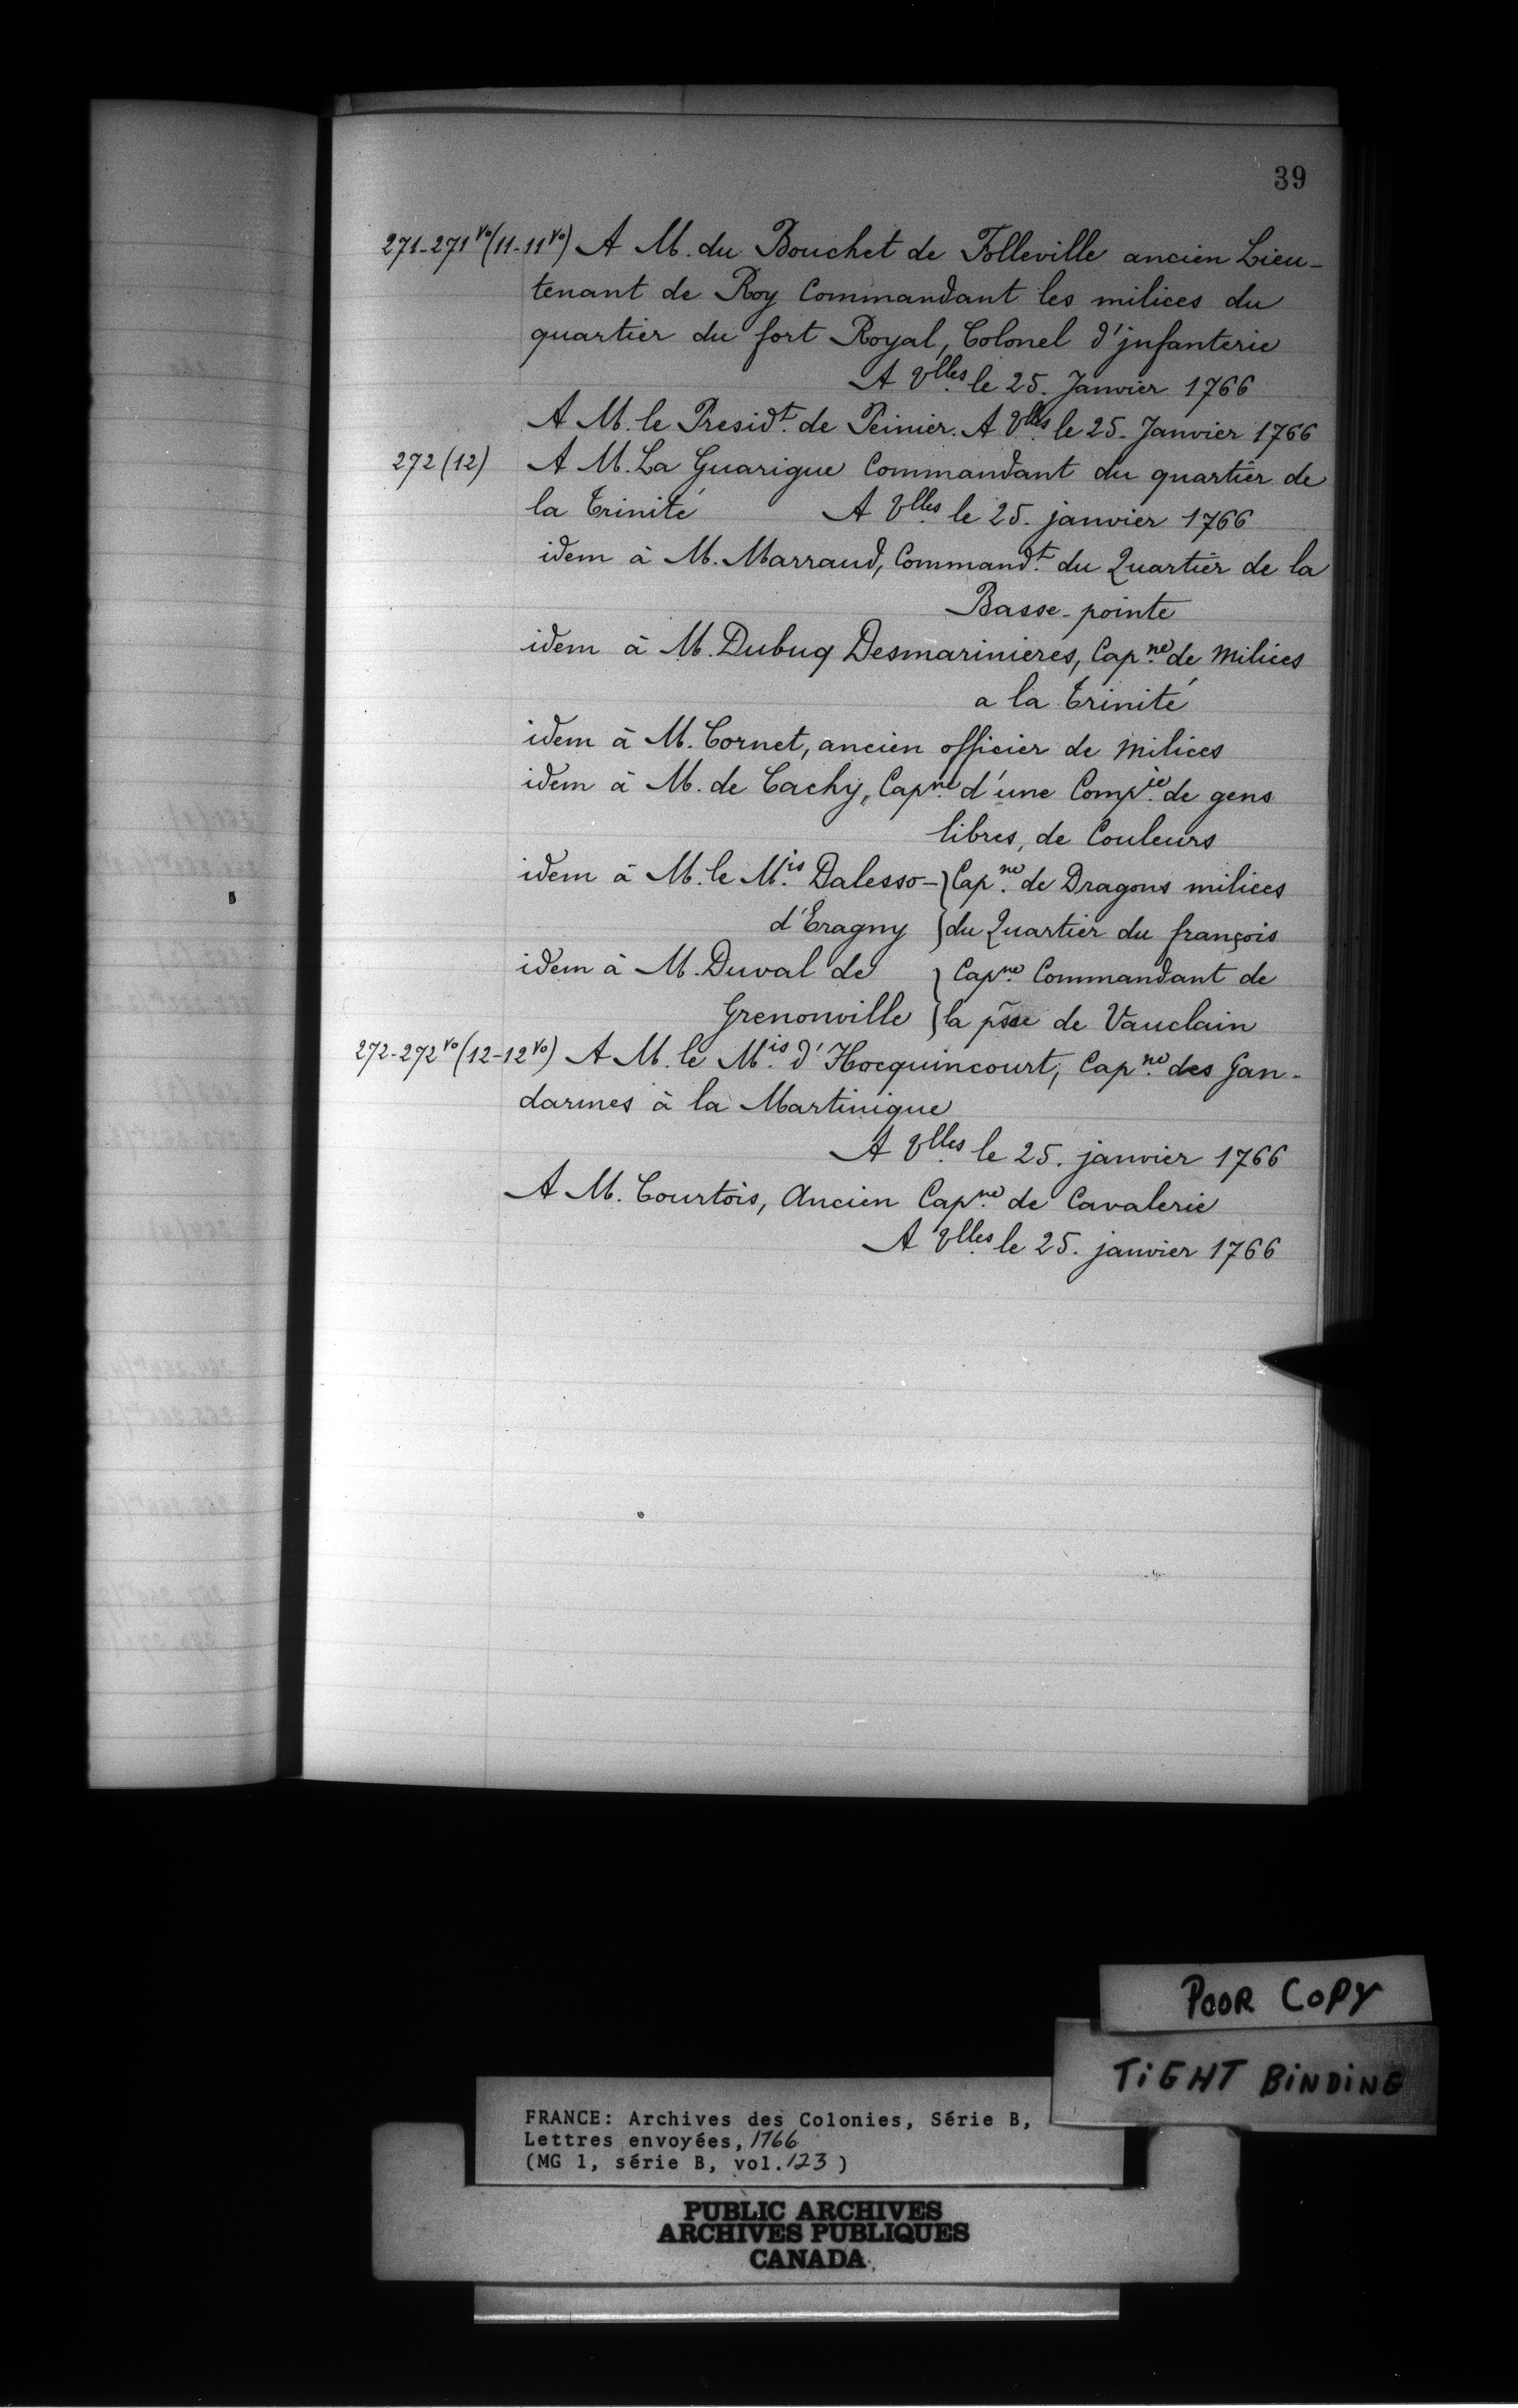 39
271-271vo(11-11vo) A M. du Bouchet de Folleville ancien Lieu-
tenant de Roy Commandant les milices du
quartier du fort Royal, Colonel d'jnfanterie
A Vlles le 25. Janvier 1766
A M. le Presidt. de Peinier. A Vlles le 25. Janvier 1766
272 (12) A M. La Guarigue Commandant du quartier de
la Trinité A Vlles le 25. janvier 1766
idem à M. Marraud, Commandt. du Quartier de la
Basse-pointe
idem à M. Dubuq Desmarinieres, Capne. de Milices
a la Trinité
idem à M. Cornet, ancien officier de Milices
idem à M. de Cachy, Capne. d'une Compie. de gens
libres, de Couleurs
idem à M. le Mis. Dalesso- } Capne. de Dragons milices
d'Eragny } du Quartier du françois
idem à M. Duval de } Capne. Commandant de
Grenonville } la põsse de Vauclain
272-272vo(12-12vo) A M. le Mis. d'Hocquincourt, Capne. des Gan-
darmes à la Martinique
A Vlles le 25. janvier 1766
A M. Courtois, Ancien Capne. de Cavalerie
A Vlles le 25. janvier 1766
POOR COPY
TIGHT BINDING
FRANCE: Archives des Colonies, Série B,
Lettres envoyées, 1766
(MG 1, série B, vol. 123 )
PUBLIC ARCHIVES
ARCHIVES PUBLIQUES
CANADA